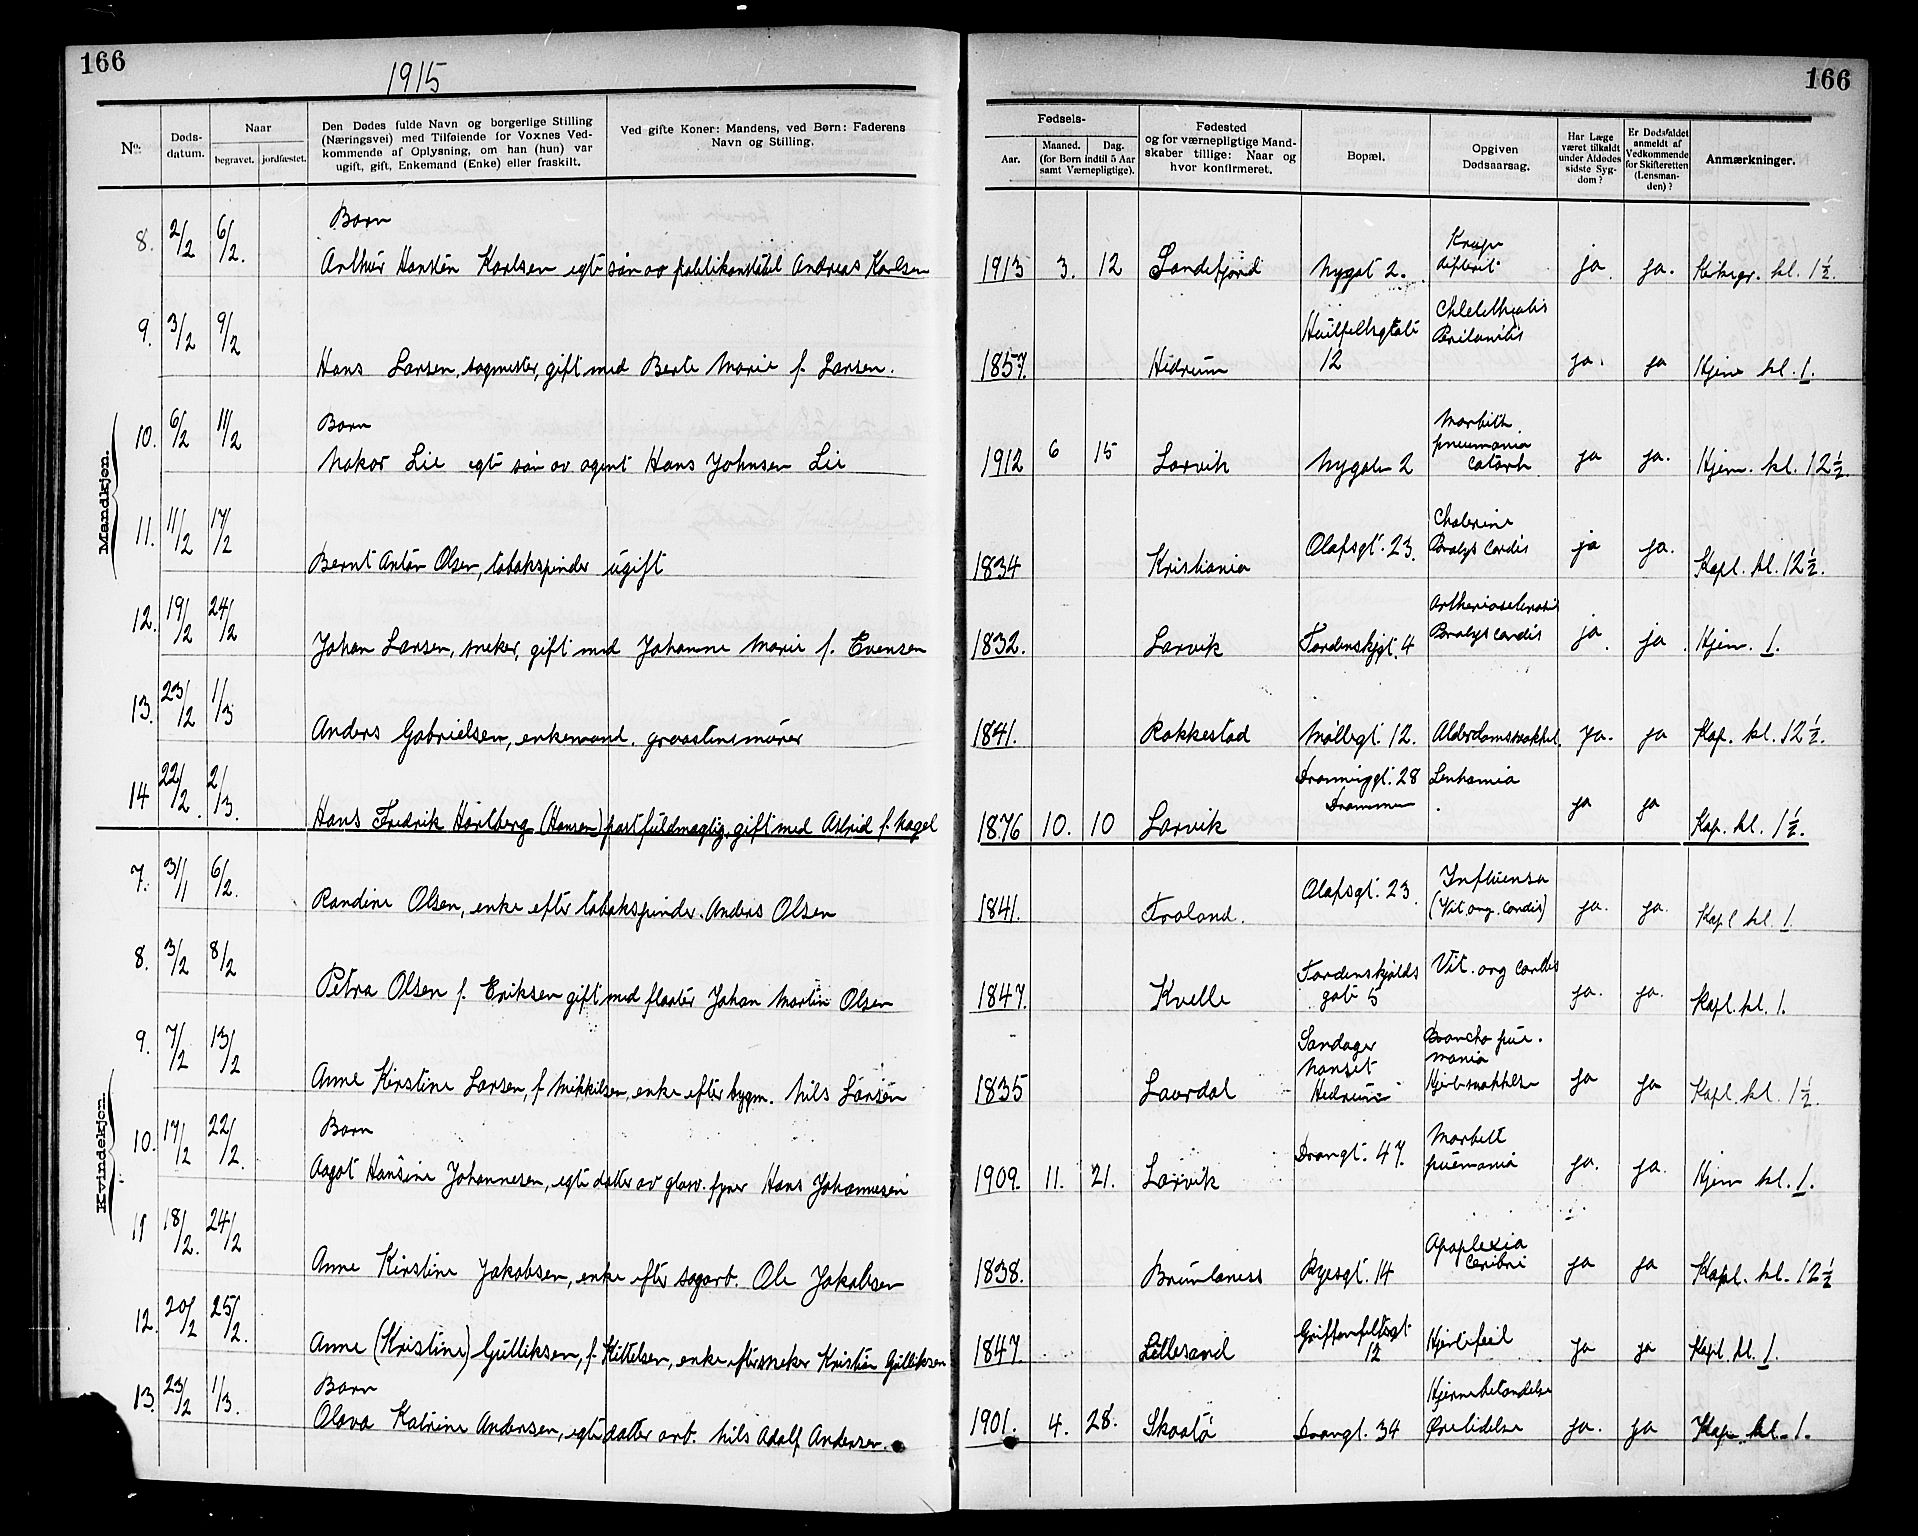 166
1915
166
No.
Døds-
datum.
Naar
begravet. jordfæstet.
Den Dødes fulde Navn og borgerlige Stilling
(Næringsvei) med Tilføiende for Voxnes Ved-
kommende af Oplysning, om han (hun) var
ugift, gift, Enkemand (Enke) eller fraskilt.
Ved gifte Koner: Mandens, ved Børn: Faderens
Navn og Stilling.
Fødsels-
Aar.
Maaned. Dag.
(for Børn indtil 5 Aar
samt Værnepligtige).
Fødested
og for værnepligtige Mand-
skaber tillige: Naar og
hvor konfirmeret.
Bopæl.
Opgiven
Dødsaarsag.
Har Læge
været tilkaldt
under Afdødes
sidste Syg-
dom?
Er Dødsfaldet
anmeldt af
Vedkommende
for Skifteretten
(Lensman-
den)?
Anmærkninger.
Mandkjøn.
8. 2/2 6/2. Barn
Arthur Karlsen egte søn av politikonstabel Andreas Karlsen 1913 3. 12 Sandefjord Nygat 2. Krupp difterit ja. ja. kl. 1½.
9. 3/2 9/2
Hans Larsen, sagmester, gift med Berte Marie f. Larsen. 1857. Hidrum 12 ja. ja Hjem kl. 1.
10. 6/2 11/2 Barn
Nakor Lie egte søn av agent Hans Johnsen Lie 1912 6 15 Larvik Nygaten 2 Morbilli pneumonia catarh ja ja. Hjem. kl. 12½.
11. 11/2 17/2
Bernt Anton Olsen, tobakspinder ugift 1834 Kristiania Olafsgt. 23. Cholerine Paralys cordis ja ja. Kapl. kl. 12½.
12. 19/2 24/2
Johan Larsen, sneker, gift med Johanne Marie f. Evensen 1832. Larvik Tordenskjgt. 4 Paralys cordis ja. ja. Hjem. 1.
13. 23/12 1/3
Anders Gabrielsen, enkemand. graastensmurer 1841. Rakkestad Møllegt. 12. Alderdomsvakkel. ja. ja Kap. kl. 12½.
14 22/2. 2/3.
Hans Fredrik Harlberg (Hansen) postfuldmægtig, gift med Astrid f. Nagel 1876 10. 10 Larvik Dronninggt. 28 Drammen ja ja Kap. kl. 1½.
Kvindekjøn.
7. 31/1 6/2.
Randine Olsen, enke efter tobakspinder. Anders Olsen 1841. Froland. Olafsgt. 23. Influensa (Vit. org. Cordis) ja. ja. Kapl kl. 1
8. 3/2 8/2
Petra Olsen f. Eriksen gift med fløter Johan Martin Olsen 1847. Kvelle Tordenskjolds gate 5 Vit. org cordis ja. ja. Kapl. kl. 1.
9. 7/2 13/2
Anne Kirstine Larsen, f. Mikkelsen, enke efter bygm. Nils Larsen 1835 Laurdal Sandager Nanset Hedrum Broncho pneu- monia Hjertesvakkelse ja ja Kapl. kl. 1½.
10. 17/2 22/2. Barn
Aagot Hansine Johannesen, egte datter av glasv. fyrer Hans Johannesen 1909. 11. 21. Larvik Drangt. 47. ja. ja. Hjem kl. 1.
11 18/2. 24/2
Anne Kirstine Jakobsen, enke efter sagarb. Ole Jakobsen 1838. Brunlaness Ryesgt. 14 Apoplexia Ceribri ja ja Kapl. kl. 12½
12. 20/2 25/2.
Anne (Kristine) Gulliksen, f. Kittelsen, enke efter sneker Kristian Gulliksen 1847 Lillesand Griffenfeltsgt 12 Hjertefeil ja ja Kapl. kl. 1.
13. 23/2 1/3. Barn
Olava Katrine Andersen, egte datter arb. Nils Adolf Andersen. 1901. 4. 28. Skaatø Drangt. 34 Hjernebetændelse Ørelidelse ja. ja Kap. kl. 1.